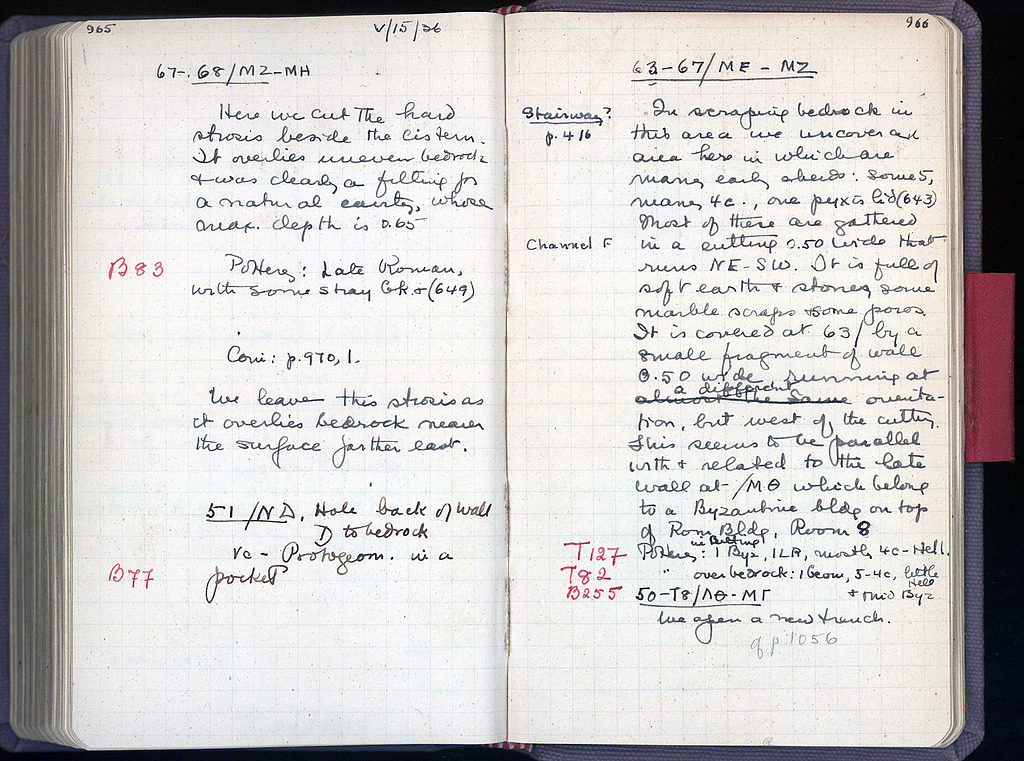 965
V/15/36
67-68/MZ-MH
Here we cut the hard
strosis beside the cistern.
It overlies uneven bedrock
& was clearly a filling for
a natural cavity, whose
max. depth is 0.65
B83
Pottery: Late Roman,
with some stray Gk & (649)
Coin: p.970,1.
We leave this strosis as
it overlies bedrock nearer
the surface farther east.
51/NΔ, Hole back of wall
D to bedrock
vc - Protogeom. in a
B77
pocket
966
63-67/ME - MZ
Stairway?
p. 416
In scraping bedrock in
this area we uncover an
area here in which are
many early sherds: some 5,
many 4c., one pyxis lid (643)
Most of these are gathered
Channel F
in a cutting 0.50 wide that
runs NE-SW. It is full of
soft earth & stones, some
marble scraps & some poros.
It is covered at 63/ by a
small fragment of wall
0.50 wide running at
a different
almost the same orienta-
tion, but west of the cutting.
This seems to be parallel
with & related to the late
wall at /MΘ which belong
to a Byzantine bldg on top
of Rom. Bldg, Room 8
in cutting
T127
Pottery: 1 Byz, 1LR, mostly 4c-Hell.
T82
" over bedrock: 1 Geom, 5-4c, little
Hell
& mid Byz
B255
50-T8/ΛΘ-MΓ
We open a new trench.
cf p 1056